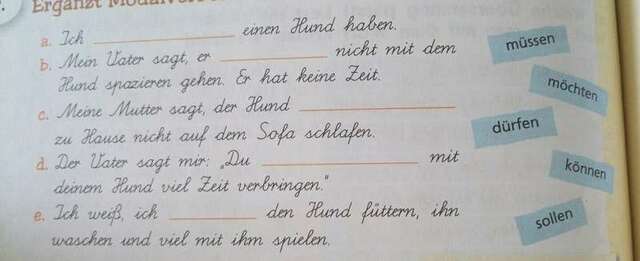 Ergänzt Modalver
a. Ich ______ einen Hund haben.
b. Mein Vater sagt, er ______ nicht mit dem
Hund spazieren gehen. Er hat keine Zeit.
c. Meine Mutter sagt, der Hund ______
zu Hause nicht auf dem Sofa schlafen.
d. Der Vater sagt mir: „Du ______ mit
deinem Hund viel Zeit verbringen.“
e. Ich weiß, ich ______ den Hund füttern, ihn
waschen und viel mit ihm spielen.
müssen
möchten
dürfen
können
sollen